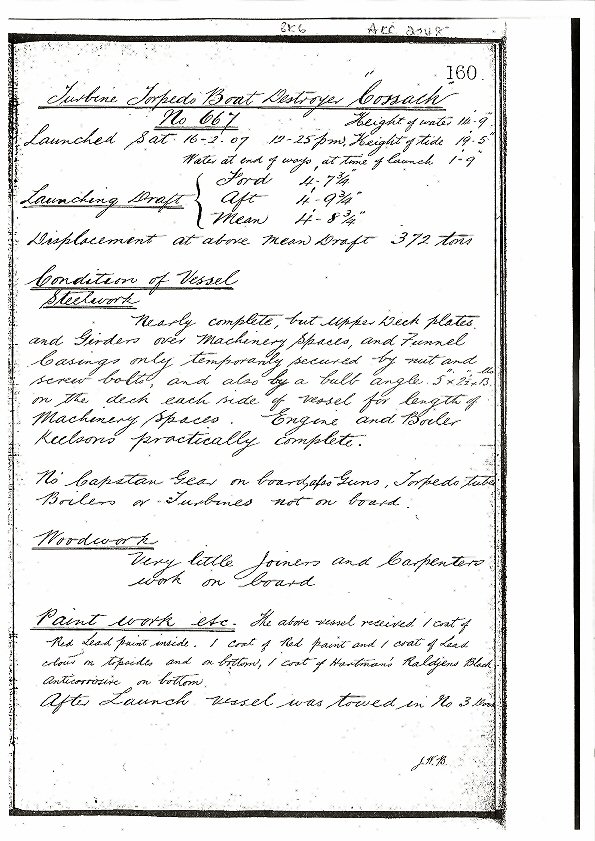 2K6 ACC 2048
160.
Turbine Torpedo Boat Destroyer "Cossack"
No 667 Height of water 14-9"
Launched Sat 16-2-07 12-25pm, Height of tide 19-5"
Water at end of ways, at time of launch 1-9"
Ford 4-7¾"
Launching Draft { Aft 4-9¾"
Mean 4-8¾"
Displacement at above Mean Draft 372 tons
Condition of Vessel
Steelwork
Nearly complete, but Upper Deck plates
and Girders over Machinery Spaces, and Funnel
Casings only temporarily secured by nut and
screw bolts, and also by a bulb angle 5" x 2½" x
on the deck each side of vessel for length of
Machinery Spaces. Engine and Boiler
Keelsons practically complete.
No Capstan Gear on board, also Guns, Torpedo tubes
Boilers or Turbines not on board.
Woodwork
Very little Joiners and Carpenters
work on board
Paint work etc. The above vessel received 1 coat of
Red Lead paint inside. 1 coat of Red paint and 1 coat of Lead
colour on topsides and on bottom, 1 coat of Hartman's Rahtjens Black
Anticorrosive on bottom.
After Launch vessel was towed in No 3 Dock
J.W.B.